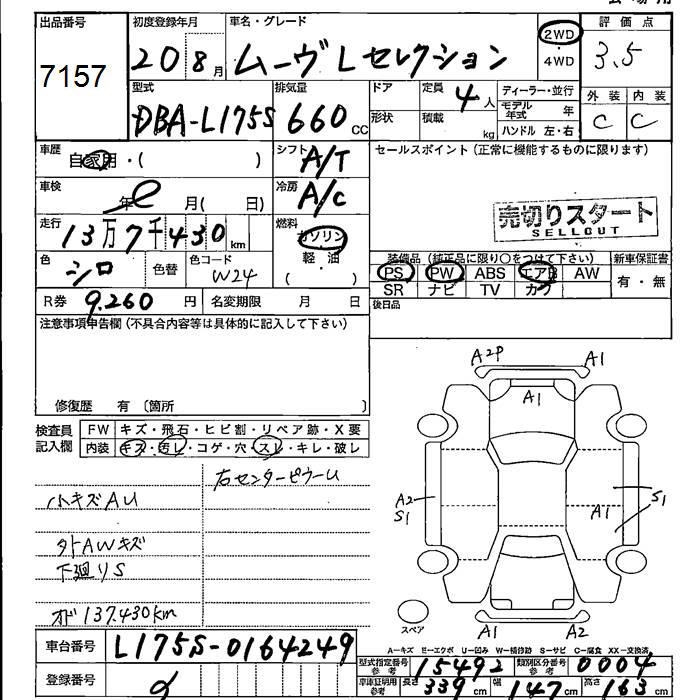 出品番号 初度登録年月 車名・グレード 2WD ・ 4WD 評価点
7157 20 8月 ムーヴLセレクション 3.5
型式 排気量 ドア 定員 4人 ディーラー・並行 外装 内装
DBA-L175S 660 CC 形状 積載 kg モデル年式 年 C C
ハンドル 左・右
車歴 自家用・( ) シフト A/T セールスポイント(正常に機能するものに限ります)
車検 年 月( 日) 冷房 A/C
売切りスタート
SELLCUT
走行 13万7千430km 燃料 ガソリン
軽・油
( )
色 シロ 色替 色コード W24
装備品(純正品に限り○をつけて下さい) 新車保証書
PS PW ABS エアB AW 有・無
SR ナビ TV カワ
R券 9.260円 名変期限 月 日 後日品
注意事項申告欄(不具合内容等は具体的に記入して下さい)
修復歴 有 〔箇所 〕
検査員記入欄 FW キズ・飛石・ヒビ割・リペア跡・X要
内装 キズ・汚レ・コゲ・穴・スレ・キレ・破レ
右センターピラーU
小キズAU
外AWキズ
下廻りS
オド137.430km
A2P A1
A1
A2 S1
A1 S1
A1 A2
スペア
A-キズ E-エクボ U-凹み W-補修跡 S-サビ C-腐食 XX-交換済
車台番号 L175S-0164249
型式指定番号 参考 15492 類別区分番号 参考 0004
登録番号
車庫証明用 参考 長さ 339cm 幅 147cm 高さ 163cm